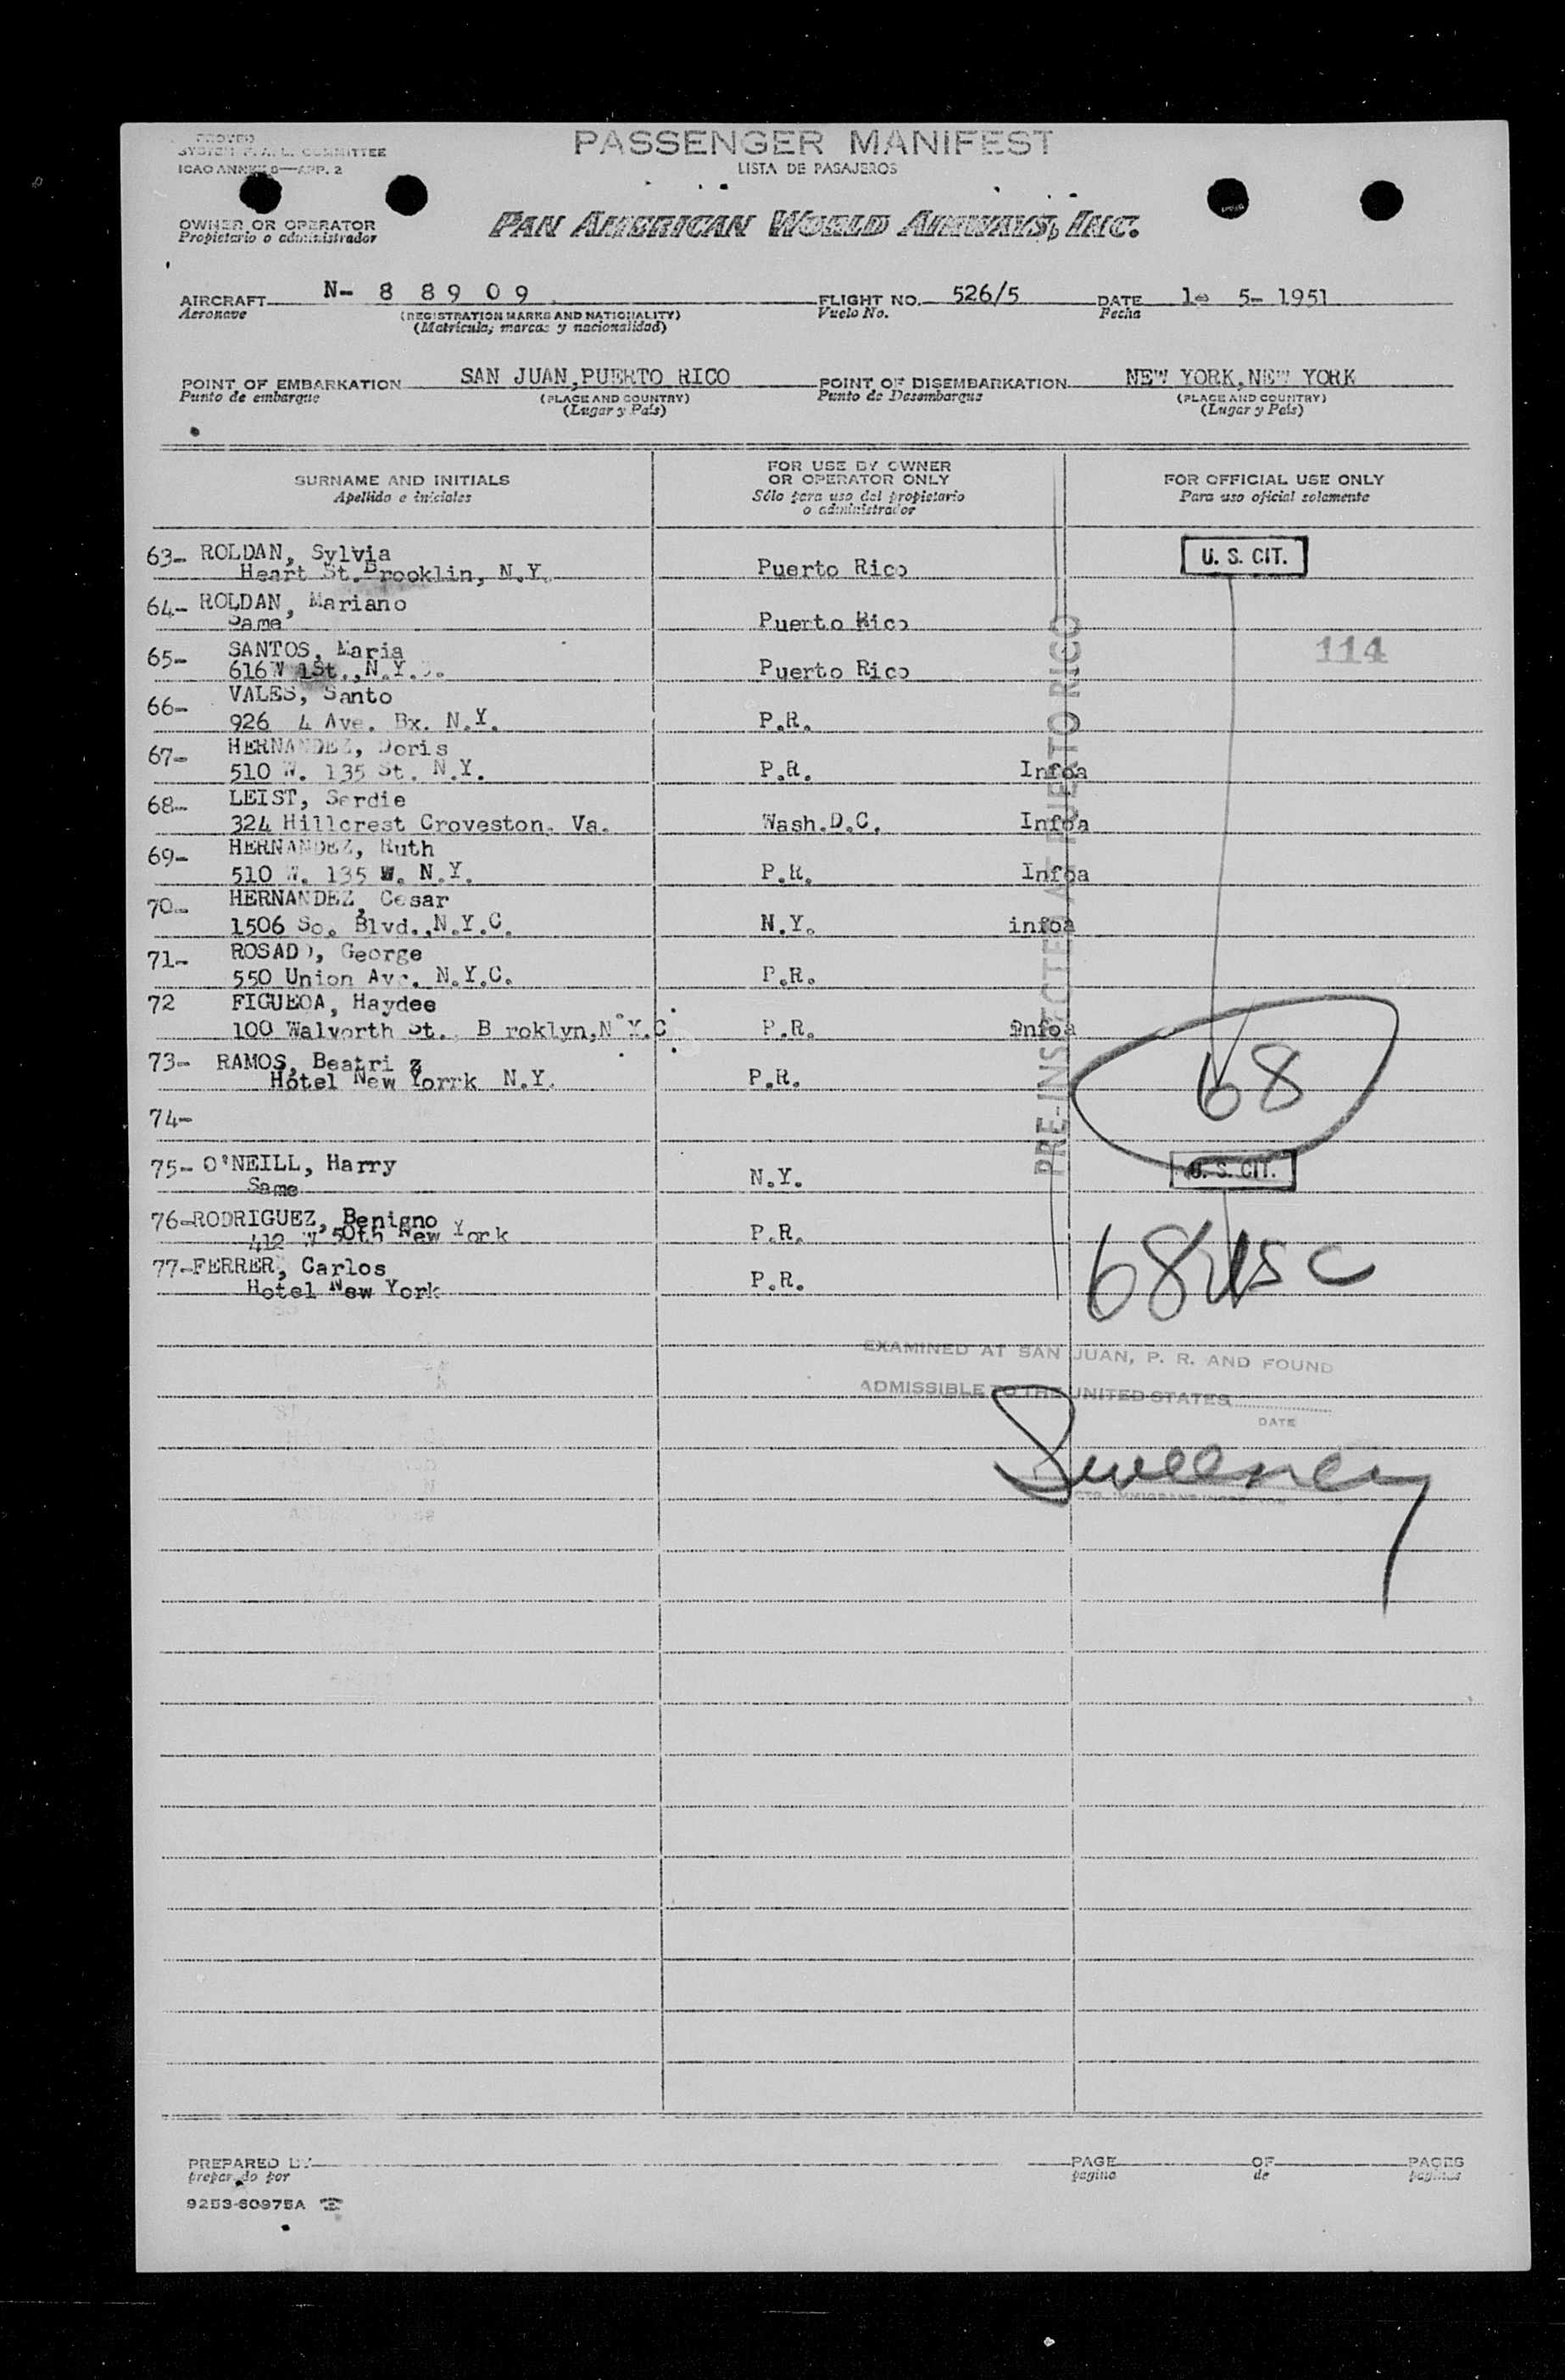 PROVED
SYSTEM F. A. L. COMMITTEE
ICAO ANNEX 9—APP. 2
PASSENGER MANIFEST
LISTA DE PASAJEROS
OWNER OR OPERATOR
Propietario o administrador
PAN AMERICAN WORLD AIRWAYS, INC.
AIRCRAFT N- 8 8 9 0 9 FLIGHT NO. 526/5 DATE 1- 5- 1951
Aeronave (REGISTRATION MARKS AND NATIONALITY) Vuelo No. Fecha
(Matricula, marcas y nacionalidad)
POINT OF EMBARKATION SAN JUAN,PUERTO RICO POINT OF DISEMBARKATION NEW YORK,NEW YORK
Punto de embarque (PLACE AND COUNTRY) Punto de Desembarque (PLACE AND COUNTRY)
(Lugar y País) (Lugar y País)
SURNAME AND INITIALS
Apellido e iniciales
FOR USE BY OWNER
OR OPERATOR ONLY
Sólo para uso del propietario
o administrador
FOR OFFICIAL USE ONLY
Para uso oficial solamente
63- ROLDAN, Sylvia U. S. CIT.
Heart St. Brooklin, N.Y. Puerto Rico
64- ROLDAN, Mariano
Same Puerto Rico
65- SANTOS, Maria 114
616W 1St.,N.Y. Puerto Rico
66- VALES, Santo
926 4 Ave. Bx. N.Y. P.R.
67- HERNANDEZ, Doris
510 W. 135 St. N.Y. P.R. Infoa
68- LEIST, Serdie
324 Hillcrest Croveston, Va. Wash.D.C. Infoa
69- HERNANDEZ, Ruth
510 W. 135 W. N.Y. P.R. Infoa
70- HERNANDEZ, Cesar
1506 So. Blvd.,N.Y.C. N.Y. infoa
71- ROSADO, George
550 Union Ave. N.Y.C. P.R.
72 FIGUEOA, Haydee
100 Walworth St. B roklyn,N.Y.C P.R. infoa
73- RAMOS, Beatri z
Hotel New Yorrk N.Y. P.R.
68
74-
75- O'NEILL, Harry U. S. CIT.
Same N.Y.
76-RODRIGUEZ, Benigno
412 W 50th New York P.R.
77-FERRER, Carlos 68 USC
Hotel New York P.R.
PRE-INSPECTED AT PUERTO RICO
EXAMINED AT SAN JUAN, P. R. AND FOUND
ADMISSIBLE TO THE UNITED STATES
DATE
Sweeney
IMMIGRANT INSPECTOR
PREPARED BY PAGE OF PAGES
preparado por pagina de paginas
9253-60975A